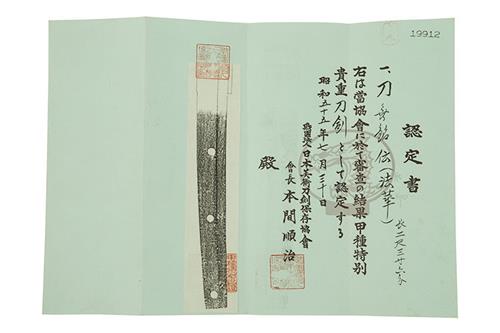 19912
認定書
一、刀 無銘 伝(法華) 長二尺三寸六分
右は當協會に於て審査の結果甲種特別
貴重刀剣として認定する
昭和五十五年七月三十日
財團法人日本美術刀剣保存協會
會長 本間順治
殿